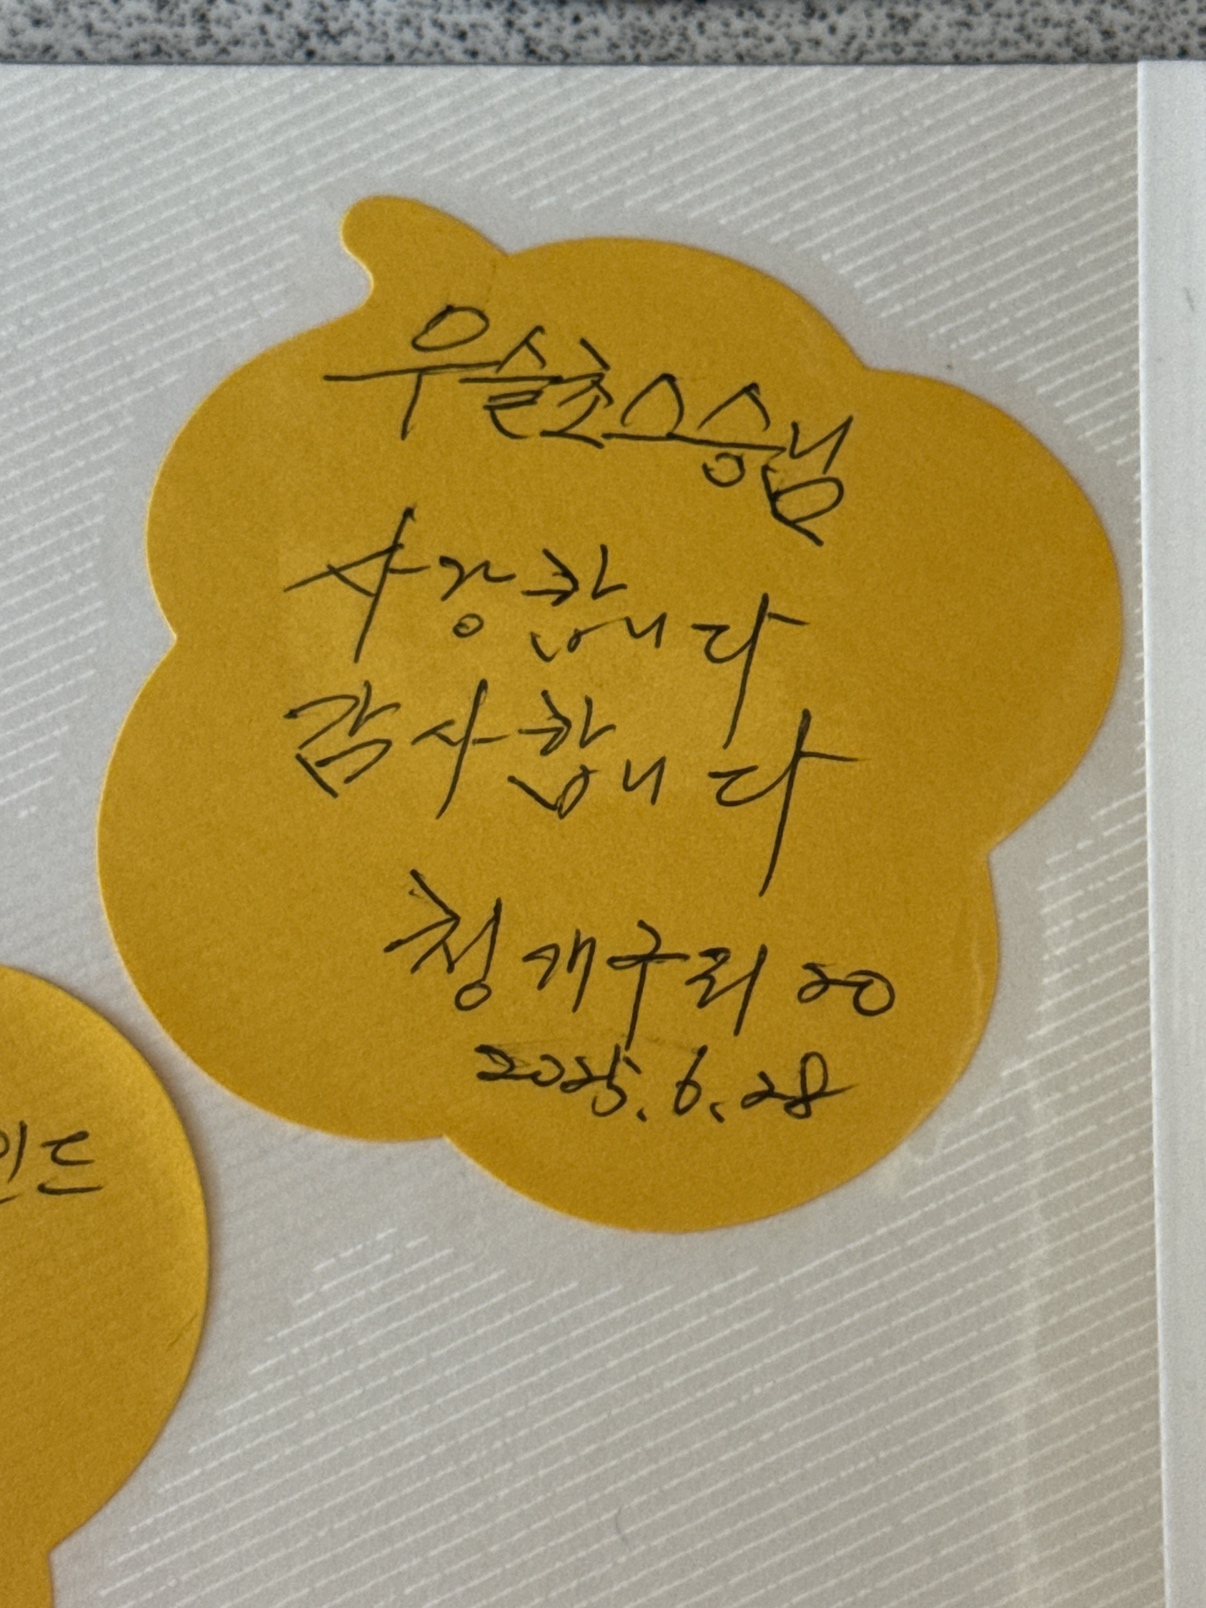 우슬초스승님
사랑합니다
감사합니다
청개구리 20
2025. 6. 28
인드